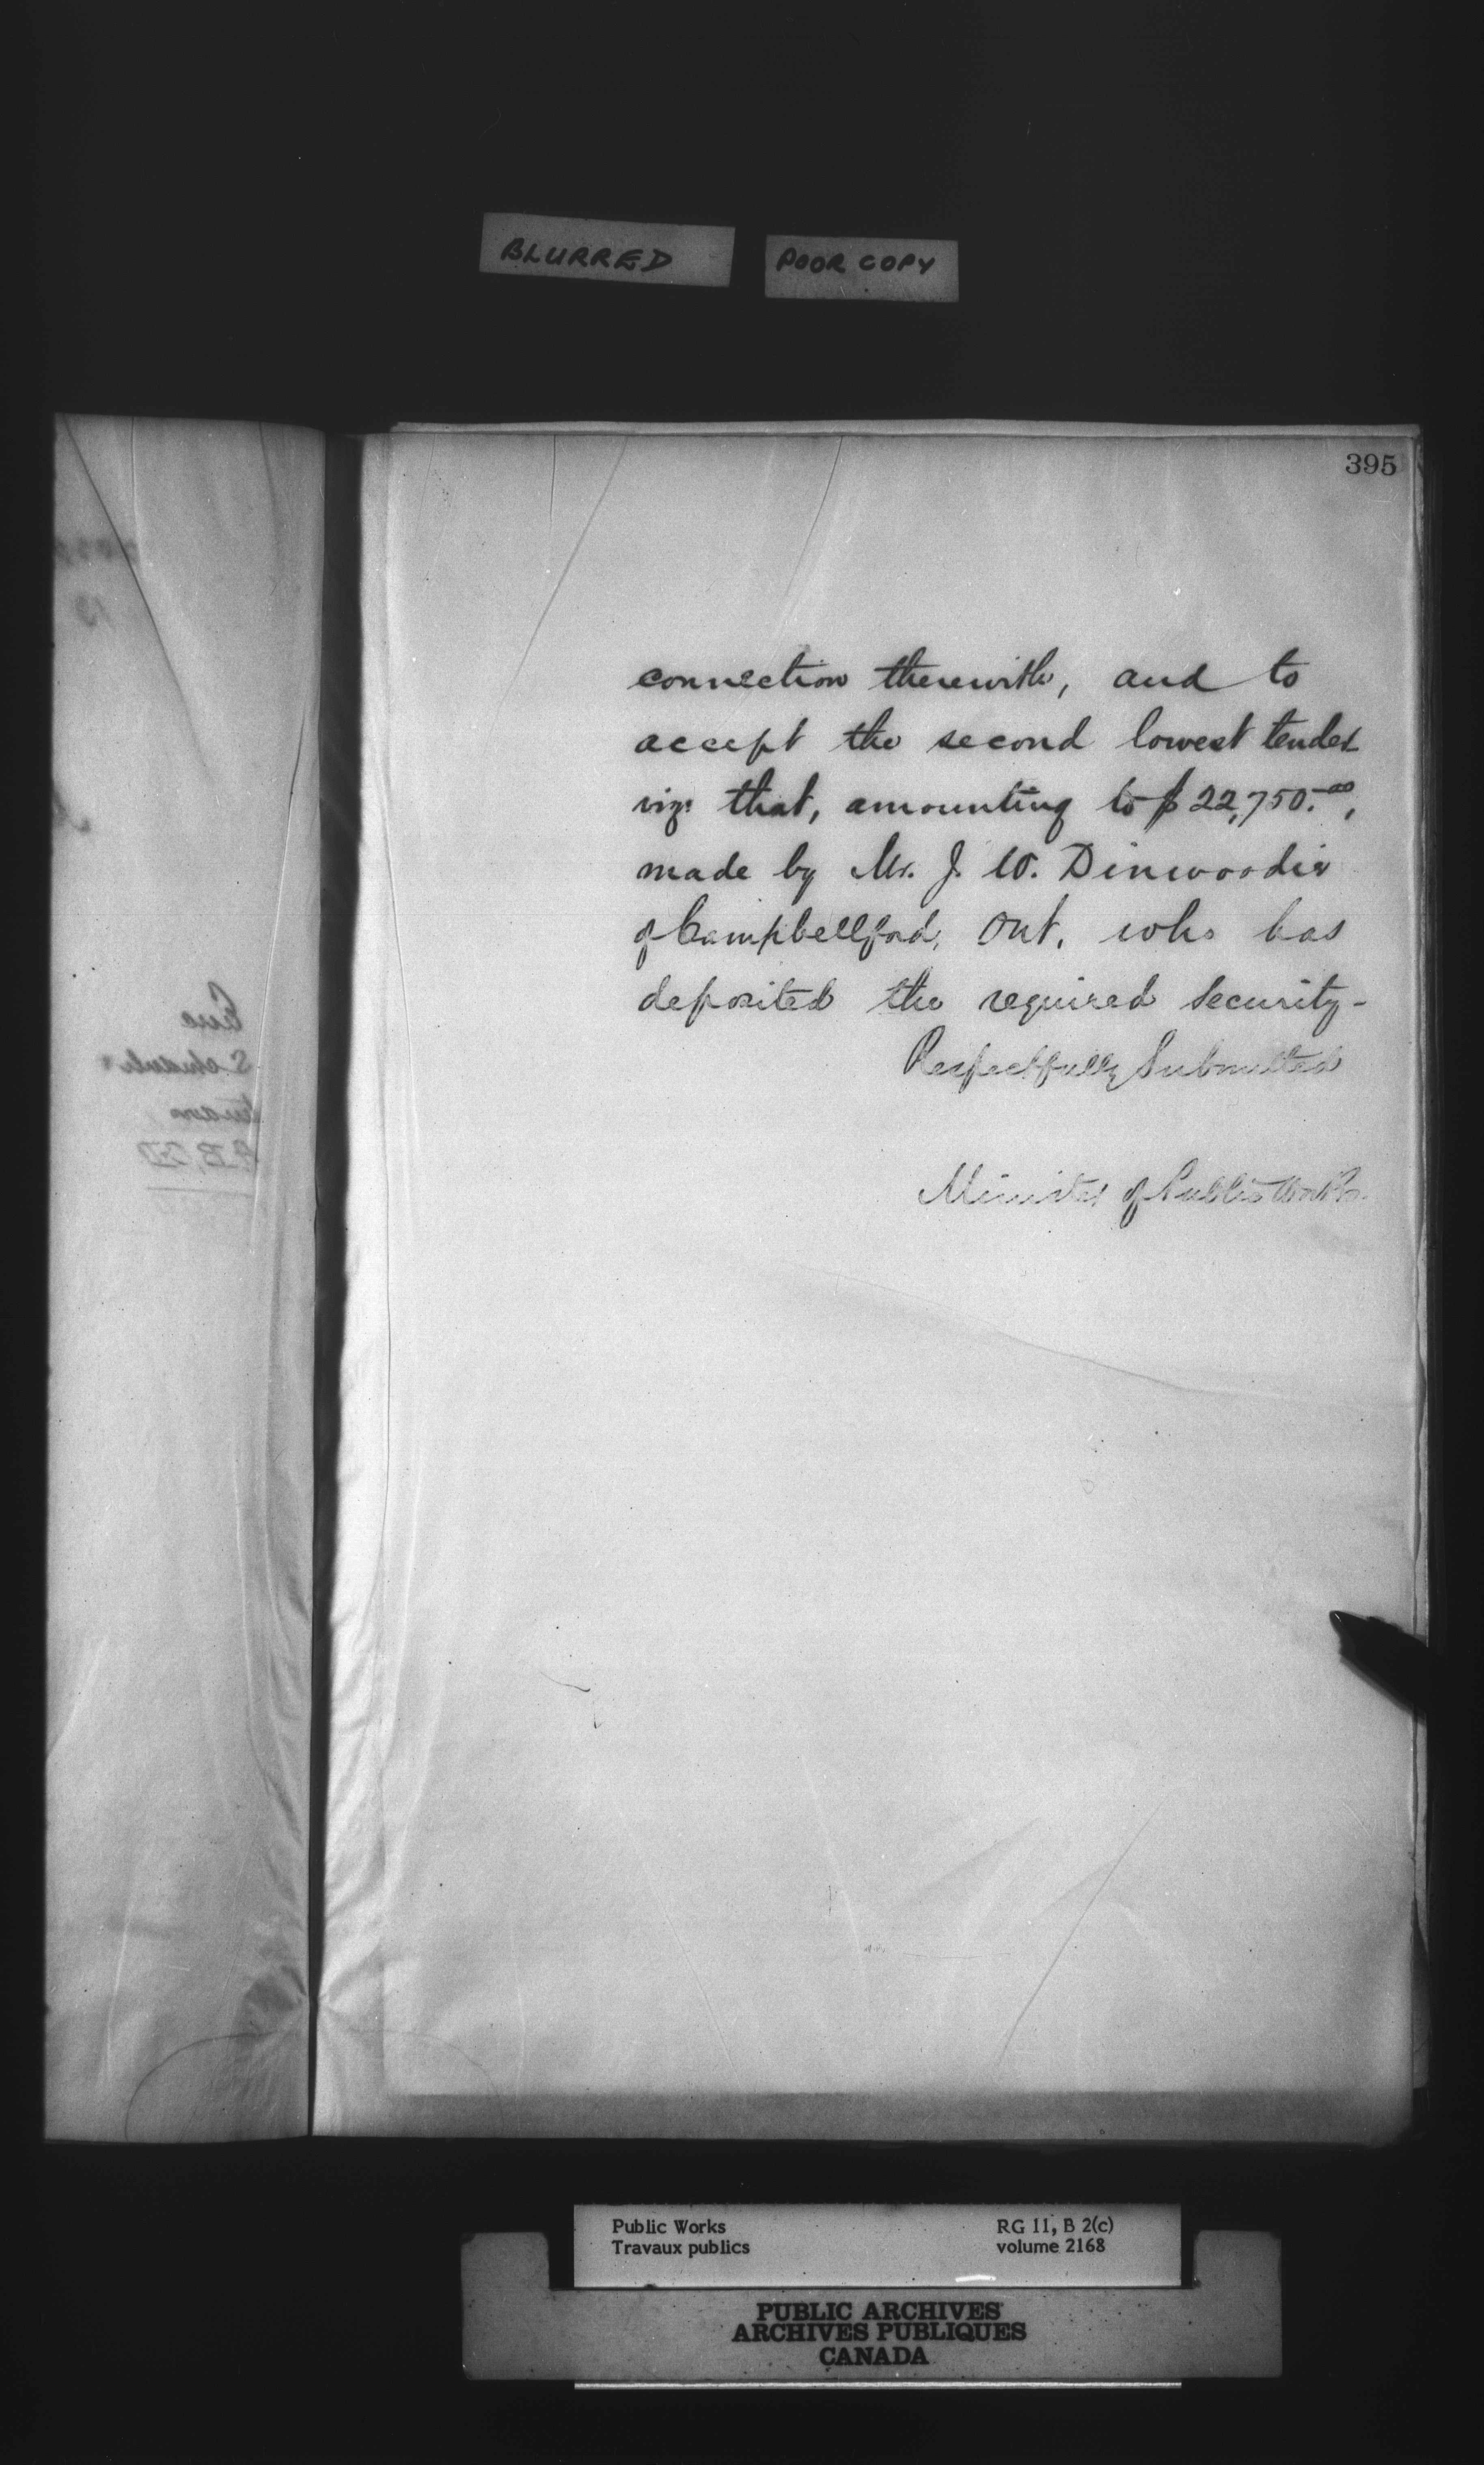 BLURRED
POOR COPY
395
connection therewith, and to
accept the second lowest tender
viz: that, amounting to $22,750.00,
made by Mr. J. W. Dinwoodie
of Campbellford, Ont. who has
deposited the required security-
Respectfully Submitted
Minister of Public Works.
Public Works
Travaux publics
RG 11, B 2(c)
volume 2168
PUBLIC ARCHIVES
ARCHIVES PUBLIQUES
CANADA